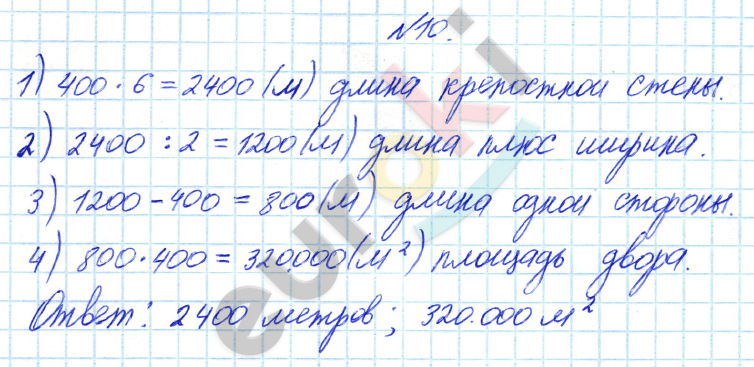 №10.
1) 400 · 6 = 2400 (м) длина крепостной стены.
2) 2400 : 2 = 1200 (м) длина плюс ширина.
3) 1200 - 400 = 800 (м) длина одной стороны.
4) 800 · 400 = 320.000 (м²) площадь двора.
Ответ: 2400 метров; 320.000 м²
euroki